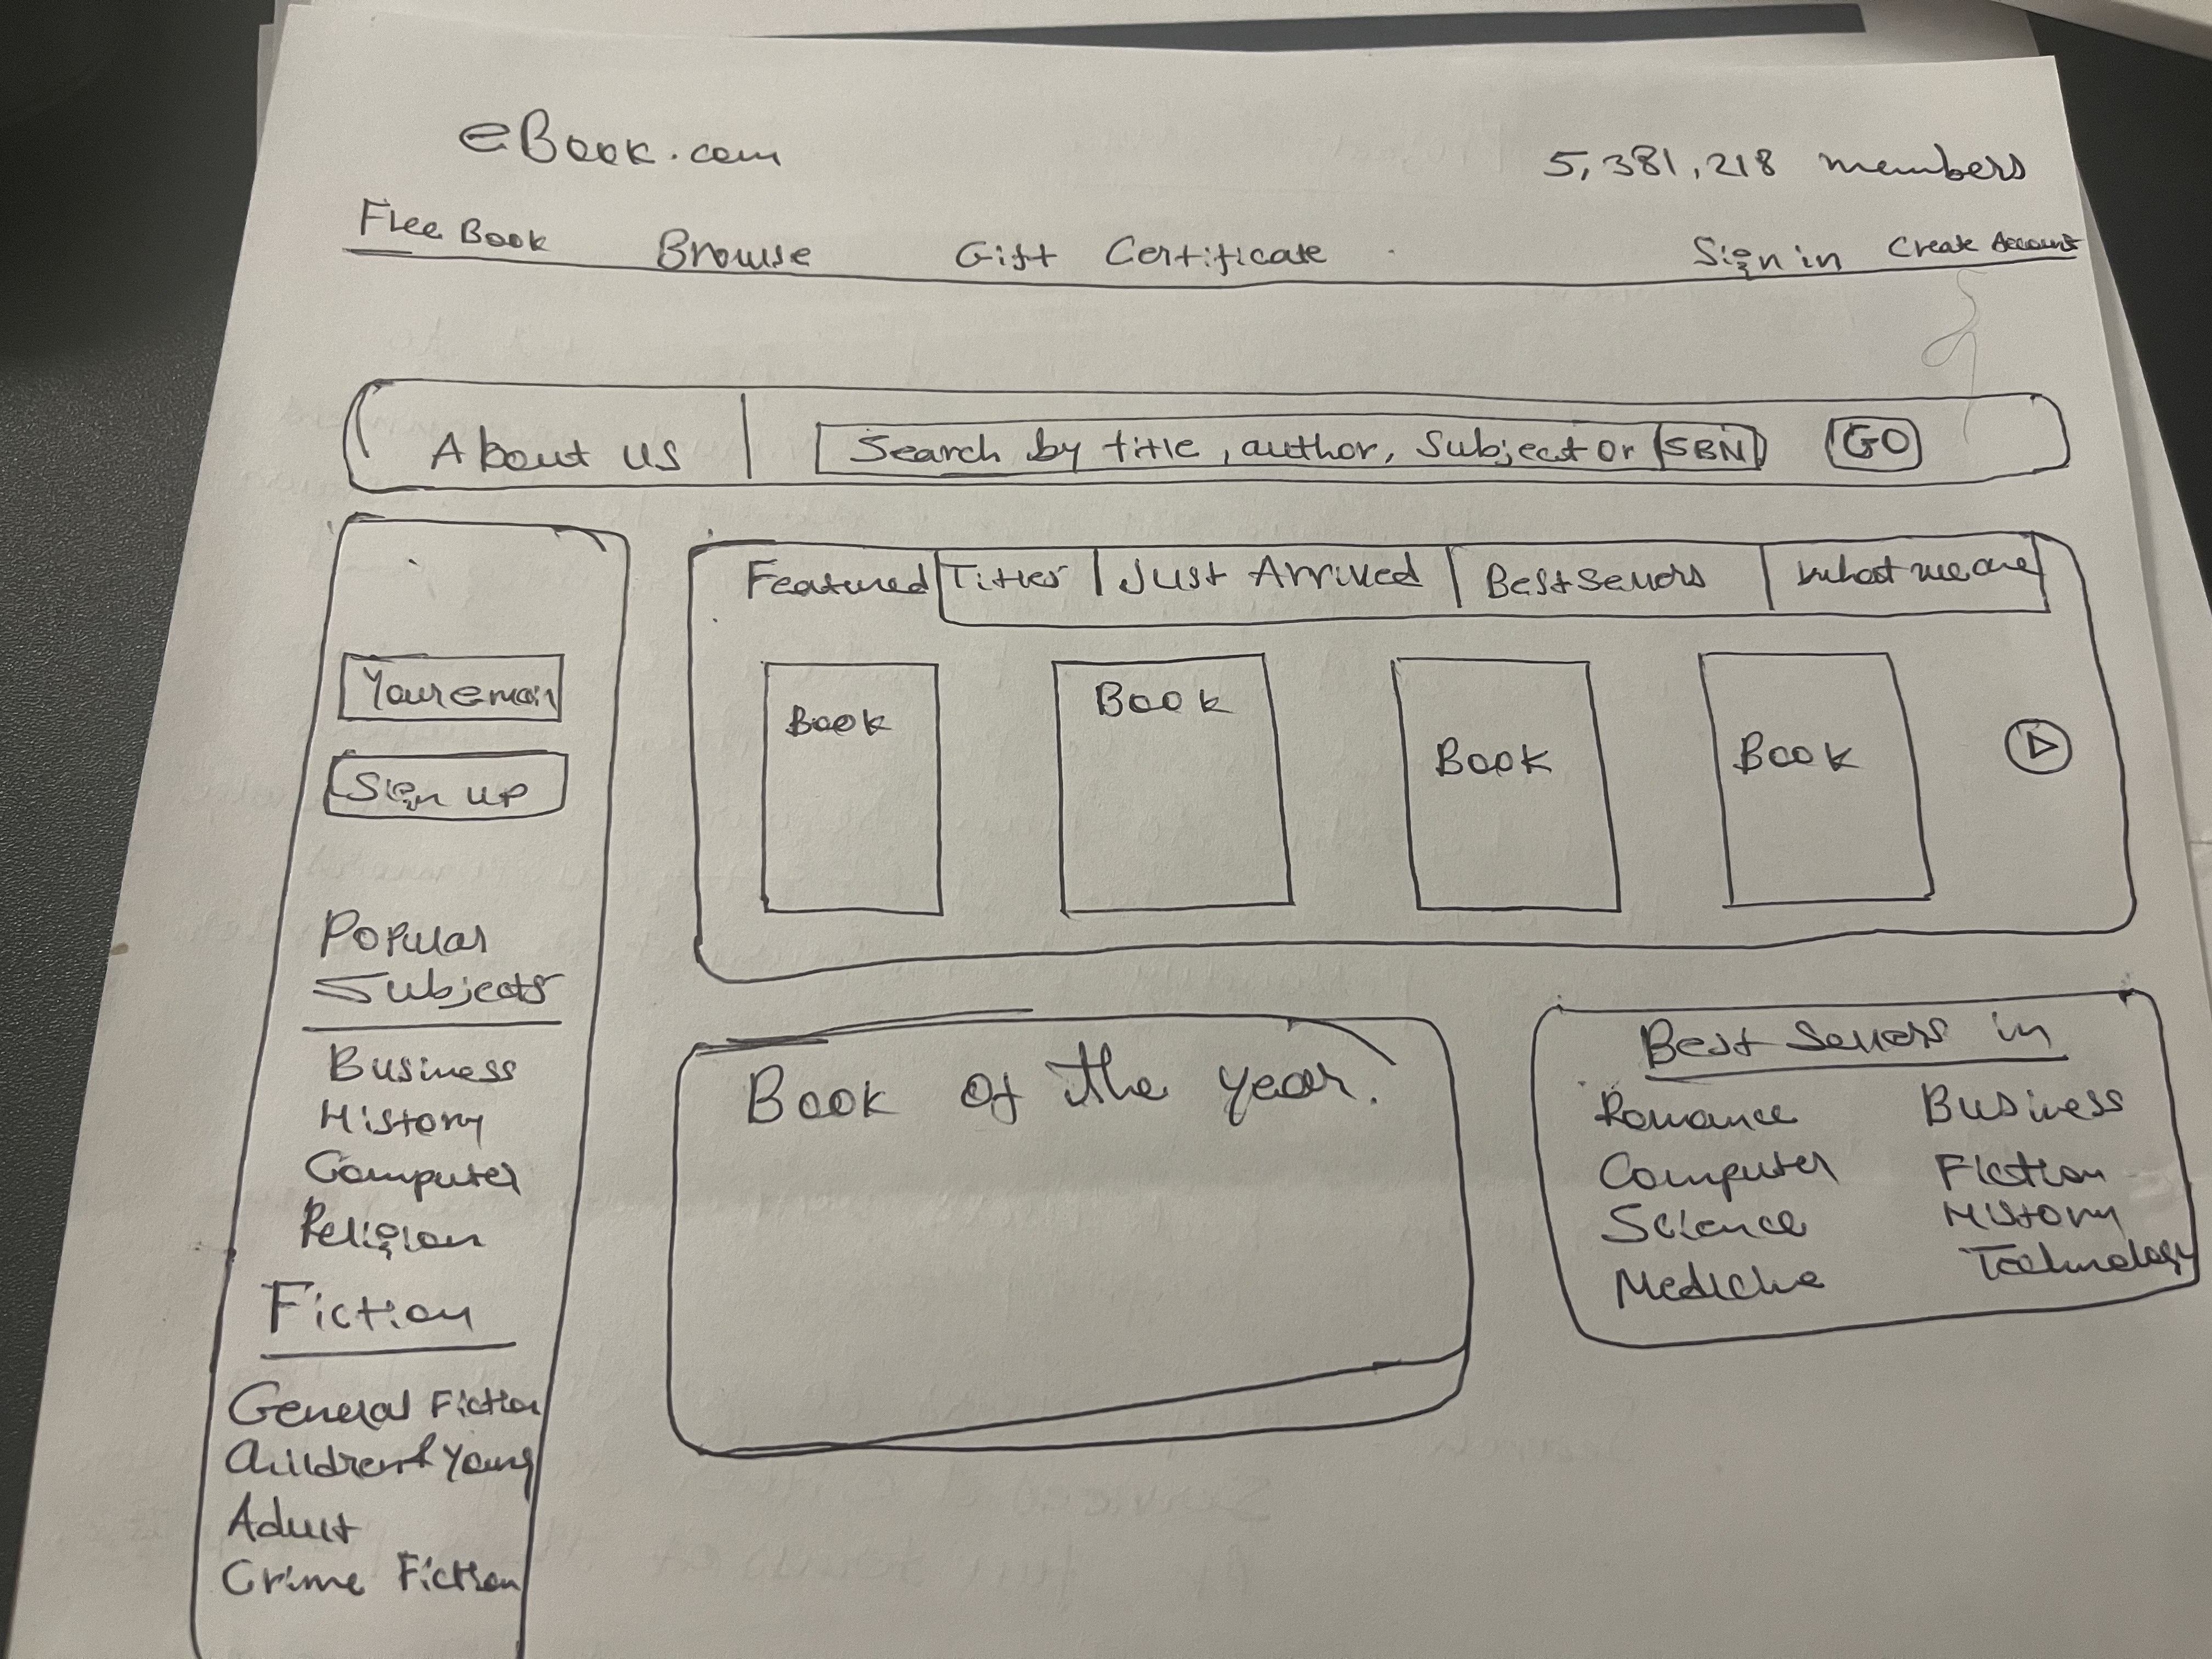 eBook.com 5,381,218 members
Free Book Browse Gift Certificate Sign in Create Account
About us | Search by title, author, Subject or ISBN GO
Your email
Sign up
Popular
Subjects
Business
History
Computer
Religion
Fiction
General Fiction
Children & Young
Adult
Crime Fiction
Featured Titles | Just Arrived | Bestsellers |
Book Book Book Book
Book of the Year.
Best Sellers in
Romance Business
Computer Fiction
Science History
Medicine Technology